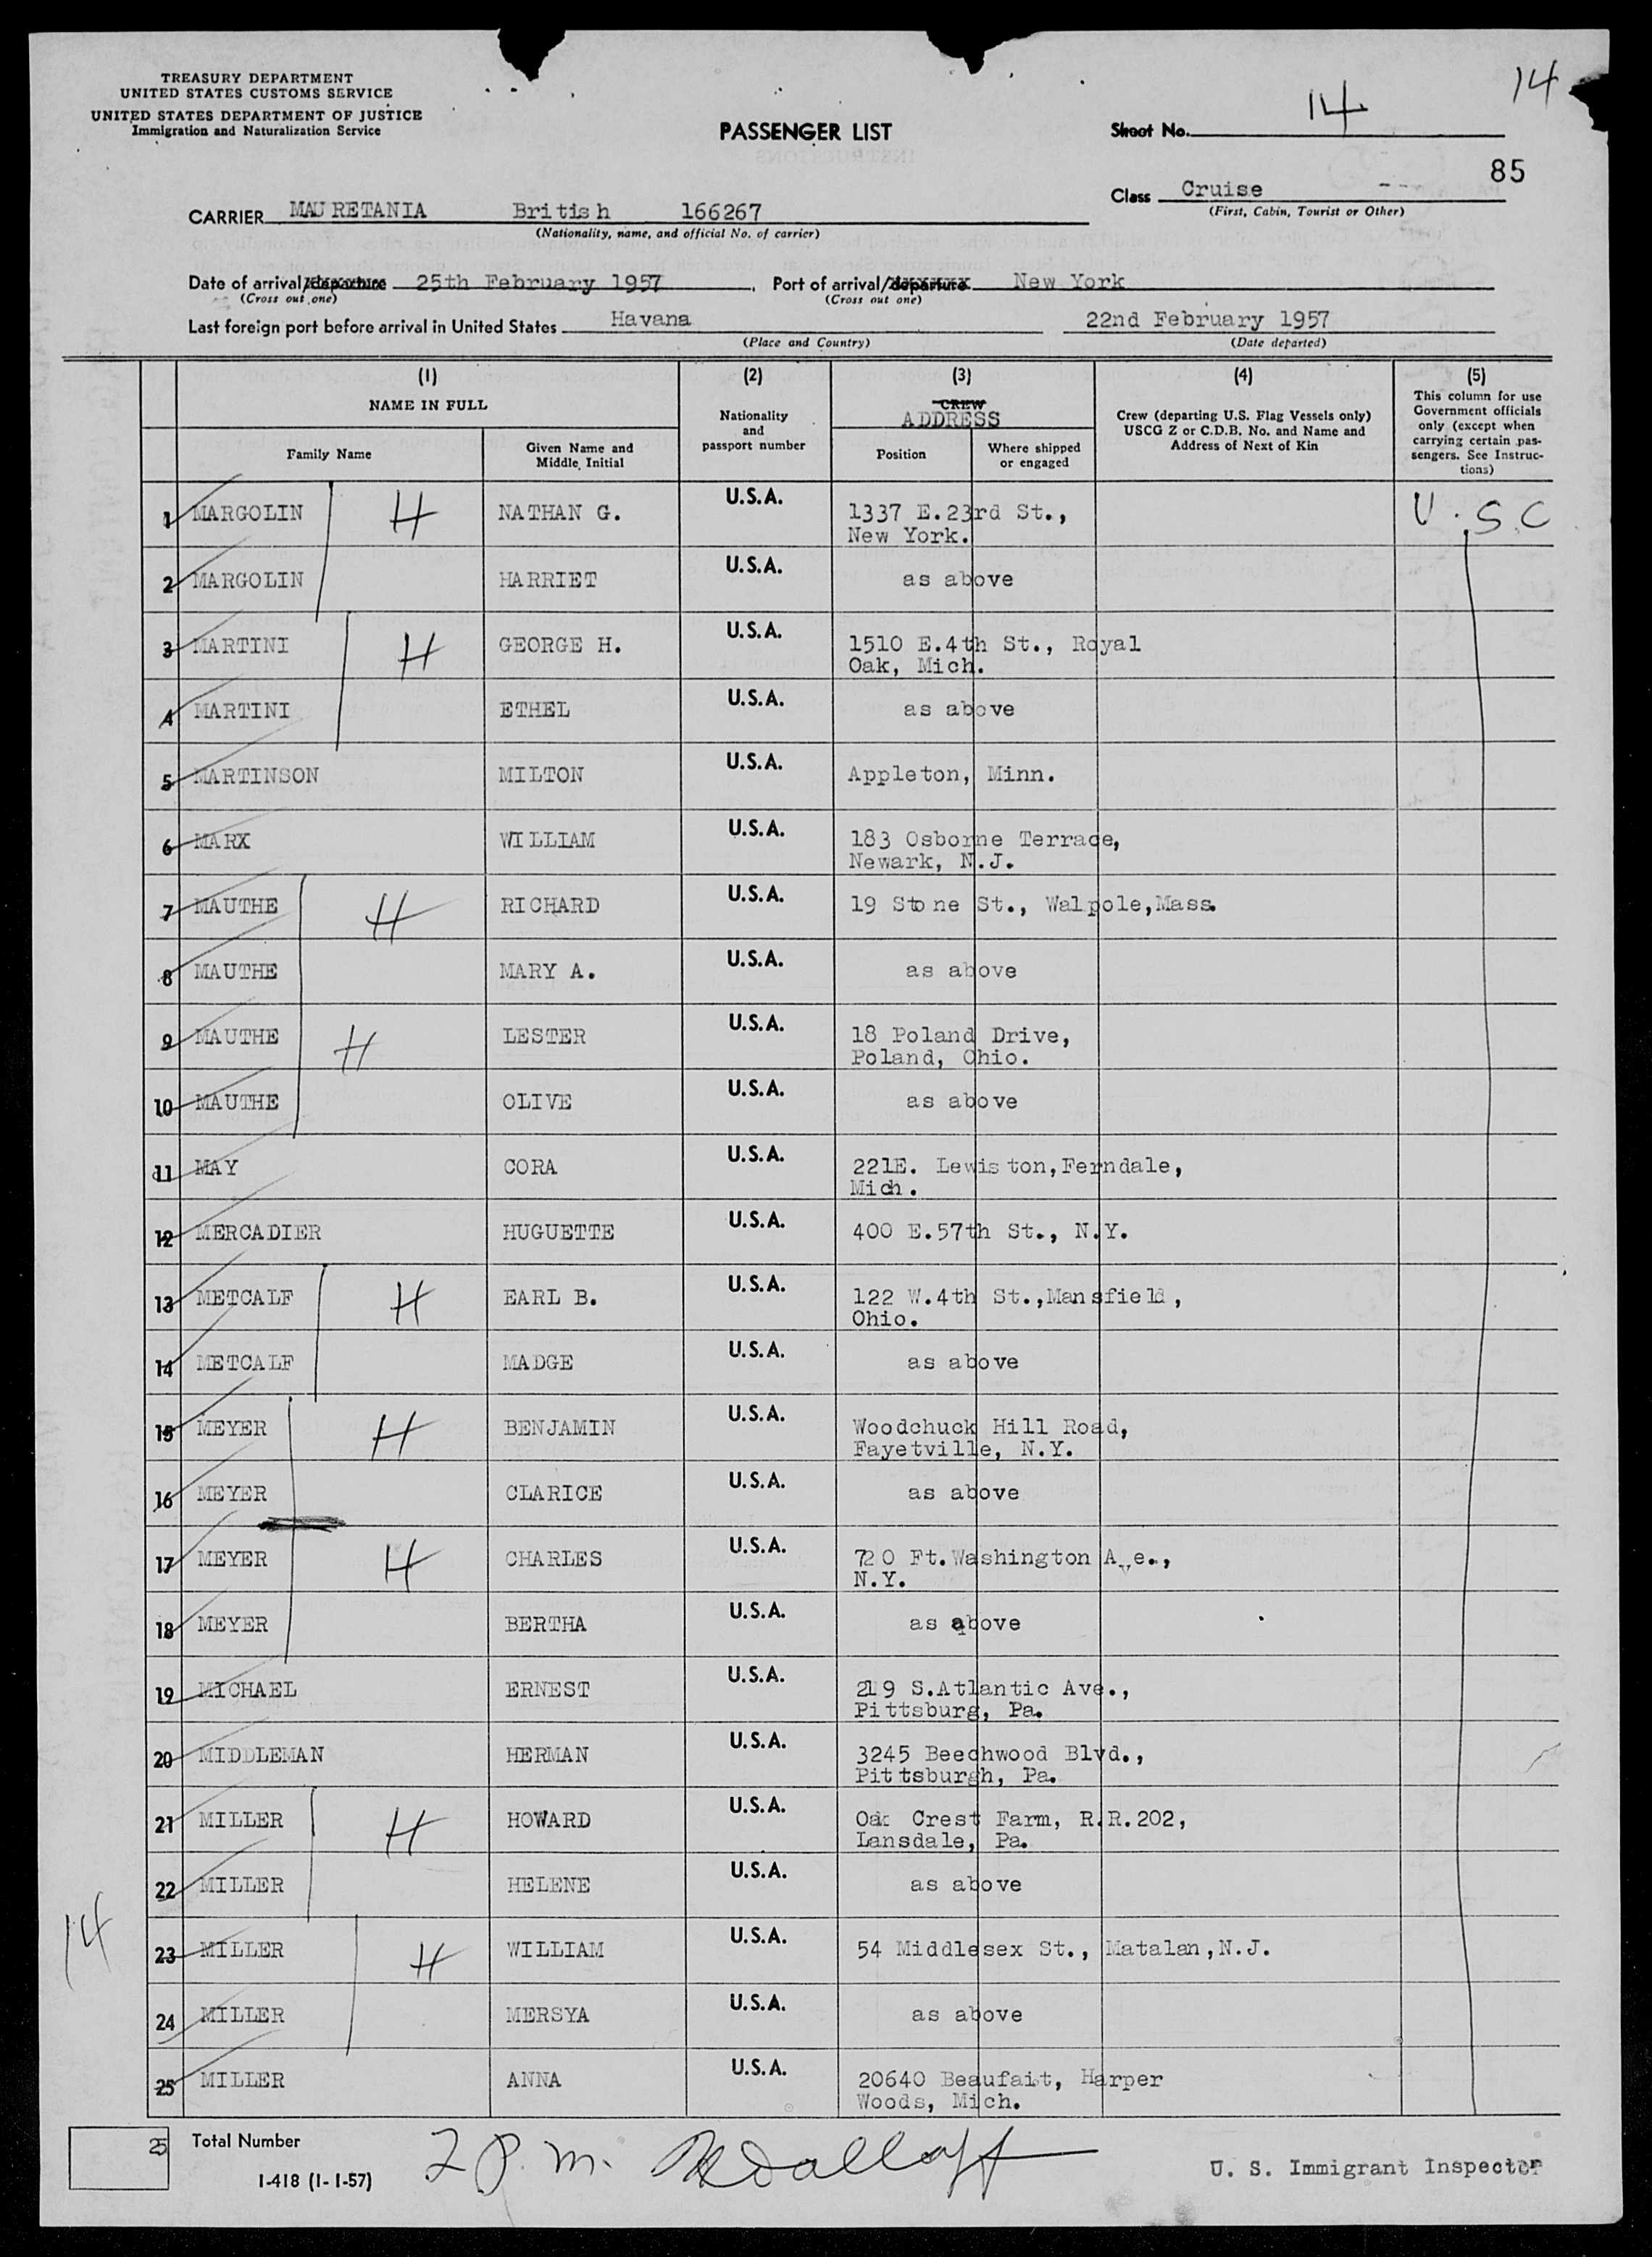 TREASURY DEPARTMENT
UNITED STATES CUSTOMS SERVICE
UNITED STATES DEPARTMENT OF JUSTICE
Immigration and Naturalization Service
PASSENGER LIST
Sheet No. 14
14
85
Class Cruise
(First, Cabin, Tourist or Other)
CARRIER MAURETANIA British 166267
(Nationality, name, and official No. of carrier)
Date of arrival/departure 25th February 1957. Port of arrival/departure New York
(Cross out one) (Cross out one)
Last foreign port before arrival in United States Havana 22nd February 1957
(Place and Country) (Date departed)
(1) (2) (3) (4) (5)
NAME IN FULL
Family Name
Given Name and
Middle Initial
Nationality
and
passport number
CREW
ADDRESS
Position
Where shipped
or engaged
Crew (departing U.S. Flag Vessels only)
USCG Z or C.D.B. No. and Name and
Address of Next of Kin
This column for use
Government officials
only (except when
carrying certain pas-
sengers. See Instruc-
tions)
1 MARGOLIN H NATHAN G. U.S.A. 1337 E.23rd St., U.S.C
New York.
2 MARGOLIN HARRIET U.S.A. as above
3 MARTINI H GEORGE H. U.S.A. 1510 E.4th St., Royal
Oak, Mich.
4 MARTINI ETHEL U.S.A. as above
5 MARTINSON MILTON U.S.A. Appleton, Minn.
6 MARX WILLIAM U.S.A. 183 Osborne Terrace,
Newark, N.J.
7 MAUTHE H RICHARD U.S.A. 19 Stone St., Walpole,Mass.
8 MAUTHE MARY A. U.S.A. as above
9 MAUTHE H LESTER U.S.A. 18 Poland Drive,
Poland, Ohio.
10 MAUTHE OLIVE U.S.A. as above
11 MAY CORA U.S.A. 221E. Lewiston,Ferndale,
Mich.
12 MERCADIER HUGUETTE U.S.A. 400 E.57th St., N.Y.
13 METCALF H EARL B. U.S.A. 122 W.4th St.,Mansfield,
Ohio.
14 METCALF MADGE U.S.A. as above
15 MEYER H BENJAMIN U.S.A. Woodchuck Hill Road,
Fayetville, N.Y.
16 MEYER CLARICE U.S.A. as above
17 MEYER H CHARLES U.S.A. 720 Ft.Washington Ave.,
N.Y.
18 MEYER BERTHA U.S.A. as above
19 MICHAEL ERNEST U.S.A. 219 S.Atlantic Ave.,
Pittsburg, Pa.
20 MIDDLEMAN HERMAN U.S.A. 3245 Beechwood Blvd.,
Pittsburgh, Pa.
21 MILLER H HOWARD U.S.A. Oak Crest Farm, R.R.202,
Lansdale, Pa.
22 MILLER HELENE U.S.A. as above
14
23 MILLER H WILLIAM U.S.A. 54 Middlesex St., Matalan,N.J.
24 MILLER MERSYA U.S.A. as above
25 MILLER ANNA U.S.A. 20640 Beaufait, Harper
Woods, Mich.
25 Total Number
I-418 (1-1-57)
2 P.m.
U. S. Immigrant Inspector